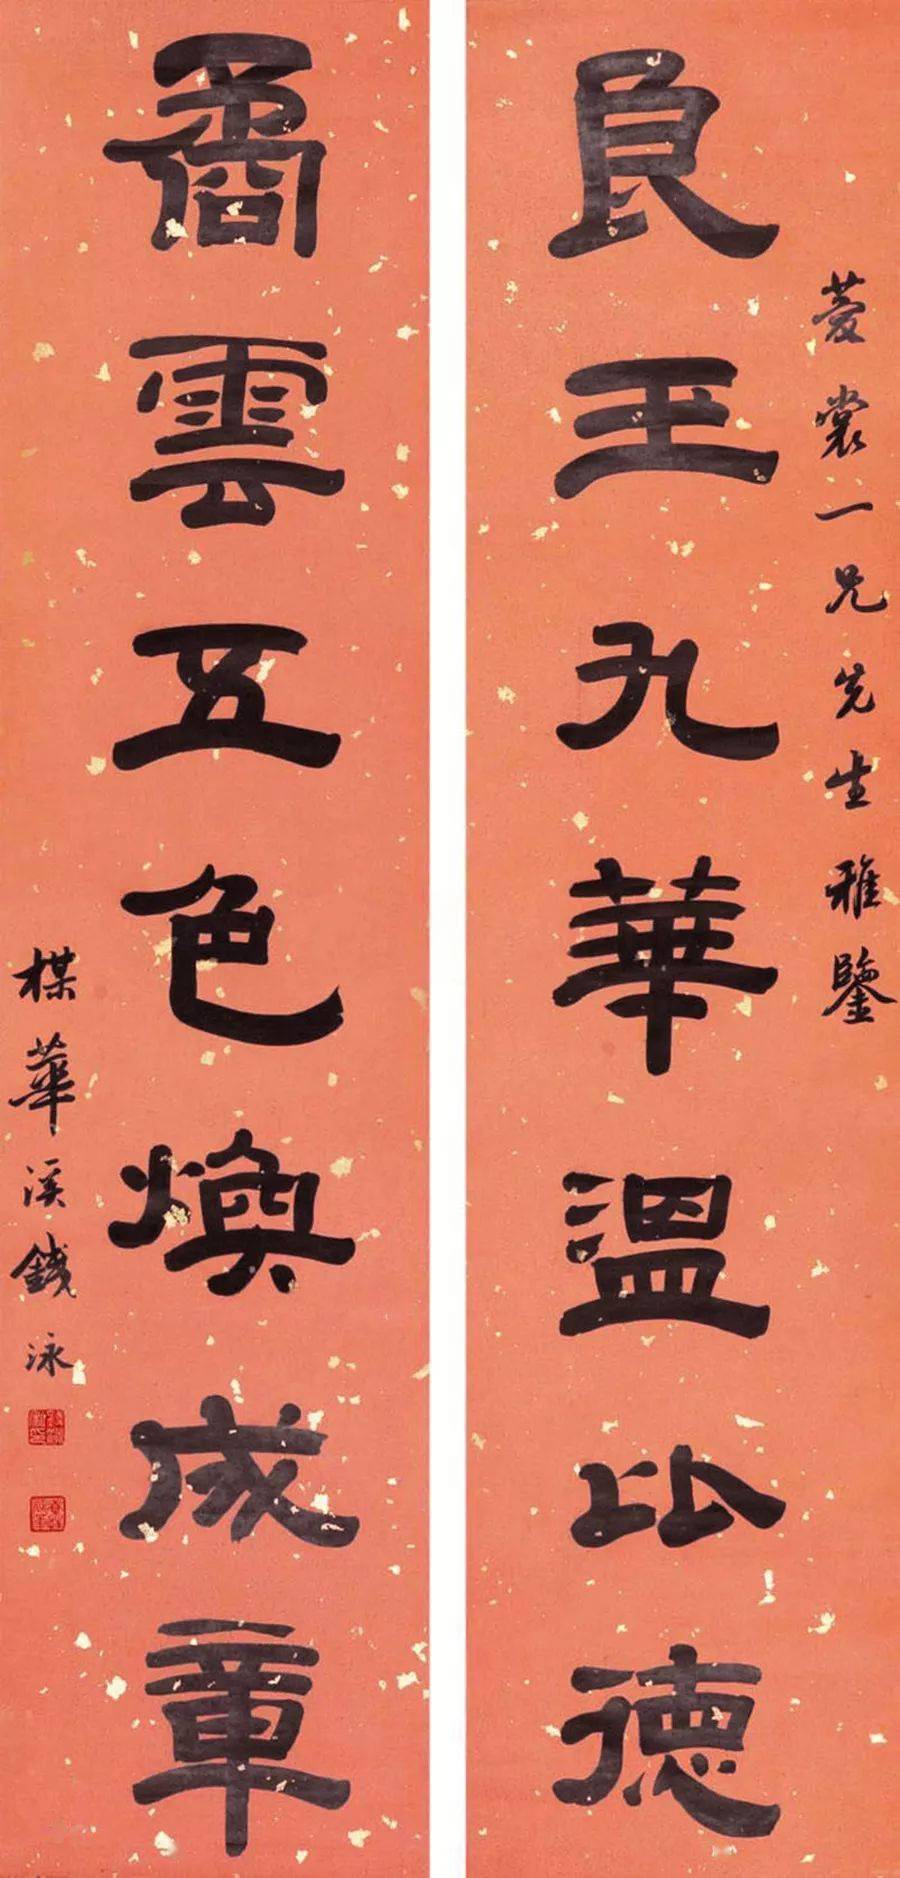 菱裳一兄先生雅鑒
良玉九華溫比德
矞雲五色煥成章
楳華溪錢泳